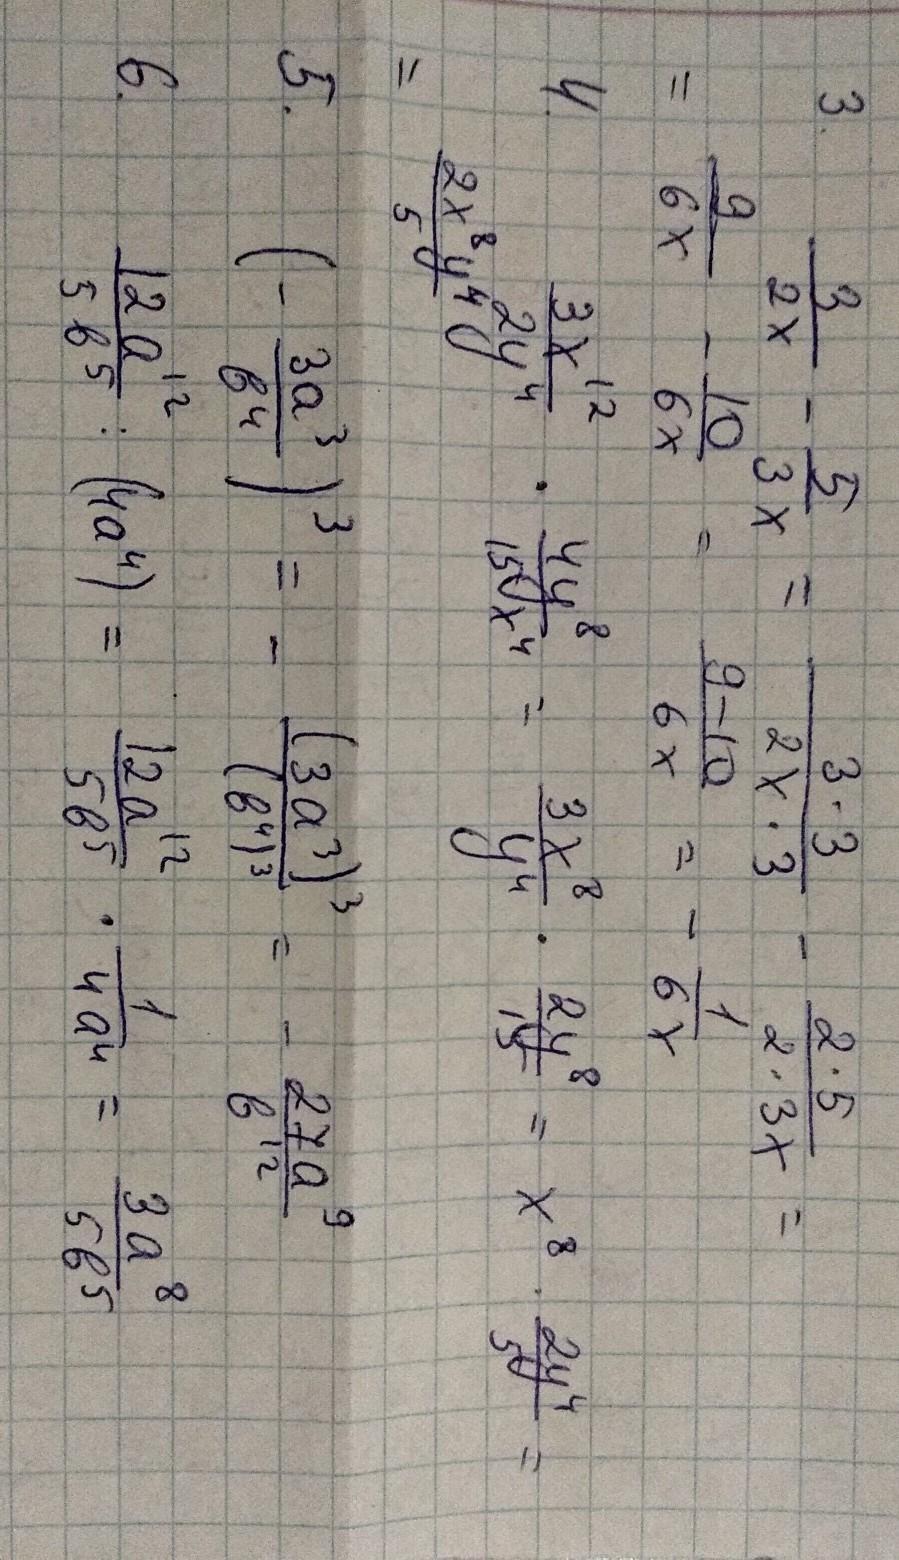 3. 3/2x - 5/3x = 3·3/2x·3 - 2·5/2·3x =
= 9/6x - 10/6x = 9-10/6x = - 1/6x
4. 3x¹²/2y⁴ · 4y⁸/15x⁴ = 3x⁸/y⁴ · 2y⁸/15 = x⁸ · 2y⁴/5 =
= 2x⁸y⁴/5
5. (- 3a³/b⁴)³ = - (3a³)³/(b⁴)³ = - 27a⁹/b¹²
6. 12a¹²/5b⁵ : (4a⁴) = 12a¹²/5b⁵ · 1/4a⁴ = 3a⁸/5b⁵